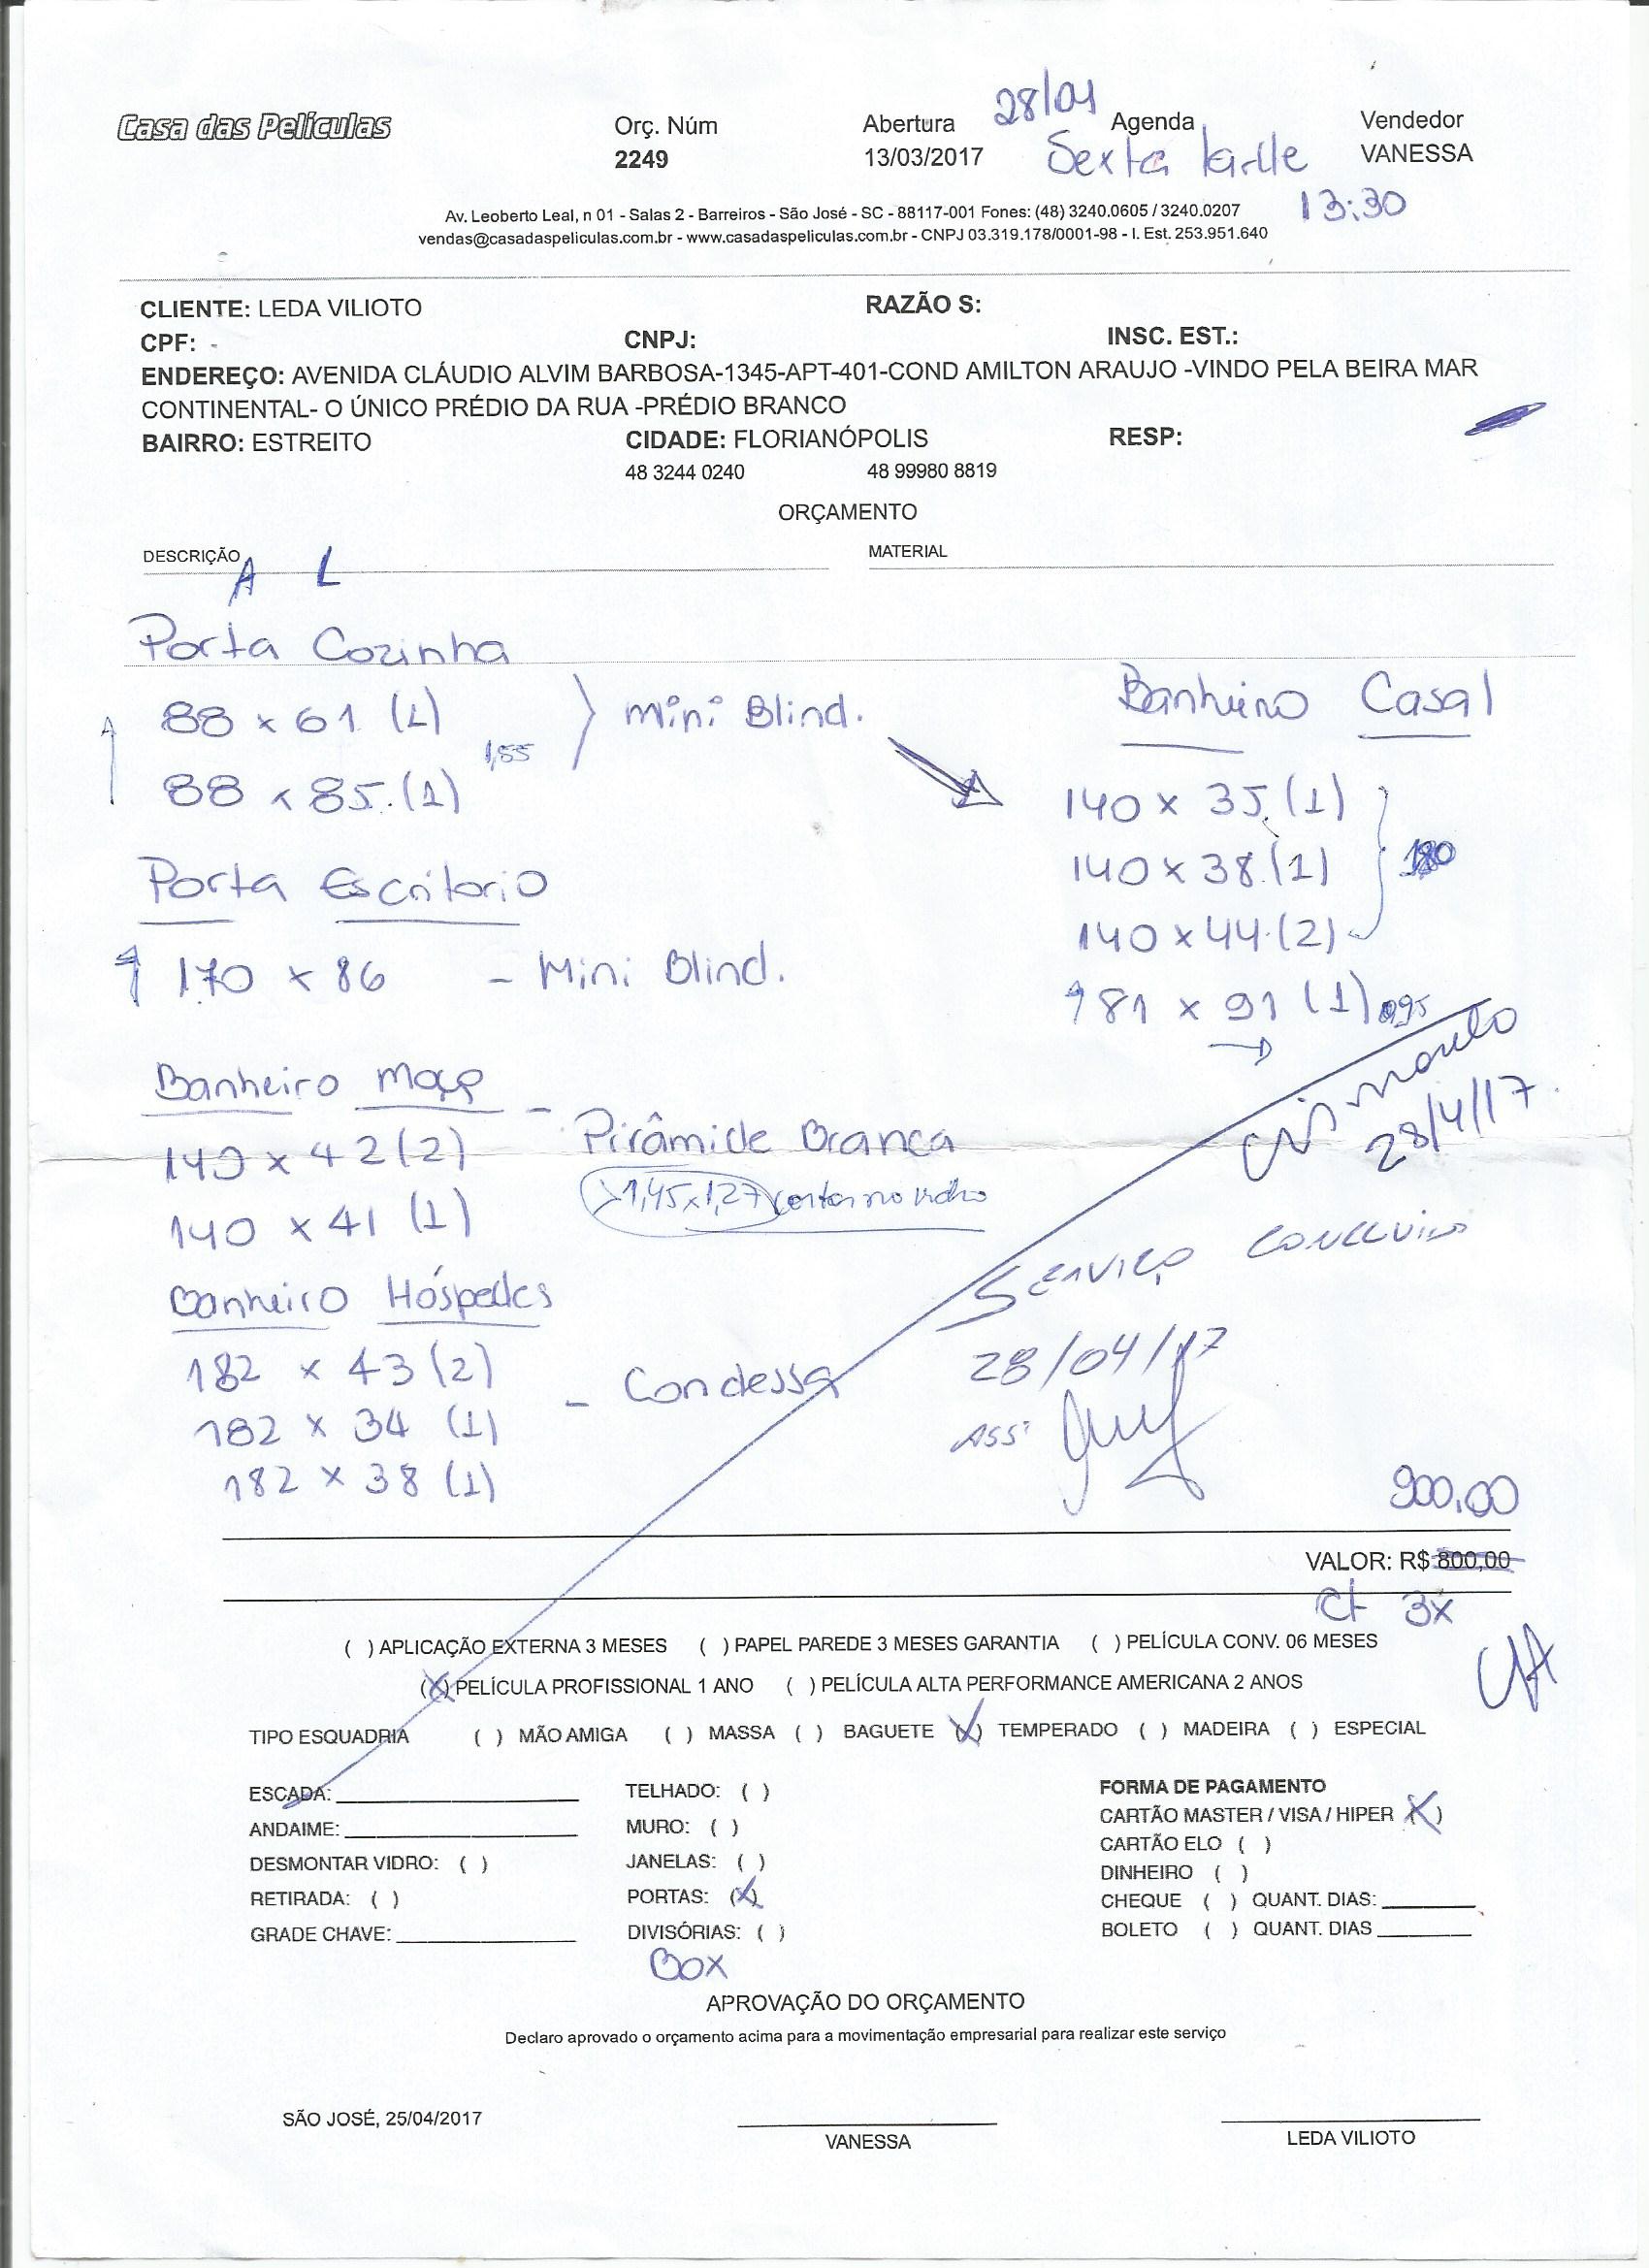 Casa das Películas
Orç. Núm
2249
Abertura
13/03/2017
28/04
Agenda
Sexta tarde
13:30
Vendedor
VANESSA
Av. Leoberto Leal, n 01 - Salas 2 - Barreiros - São José - SC - 88117-001 Fones: (48) 3240.0605 / 3240.0207
vendas@casadaspeliculas.com.br - www.casadaspeliculas.com.br - CNPJ 03.319.178/0001-98 - I. Est. 253.951.640
CLIENTE: LEDA VILIOTO RAZÃO S:
CPF: - CNPJ: INSC. EST.:
ENDEREÇO: AVENIDA CLÁUDIO ALVIM BARBOSA-1345-APT-401-COND AMILTON ARAUJO -VINDO PELA BEIRA MAR
CONTINENTAL- O ÚNICO PRÉDIO DA RUA -PRÉDIO BRANCO
BAIRRO: ESTREITO CIDADE: FLORIANÓPOLIS RESP:
48 3244 0240 48 99980 8819
ORÇAMENTO
DESCRIÇÃO MATERIAL
A L
Porta Cozinha
88 x 61 (1) } Mini Blind.
1,55
88 x 85.(1)
Porta Escritorio
170 x 86 - Mini Blind.
Banheiro Moça -
140 x 42 (2) Pirâmide Branca
1,45x1,27 cortar no vidro
140 x 41 (1)
Banheiro Hóspedes
182 x 43 (2) - Condessa
182 x 34 (1)
182 x 38 (1)
Banheiro Casal
140 x 35.(1)
140 x 38.(1) 180
140 x 44.(2)
181 x 91 (1) 0,95
28/4/17.
SERVIÇO CONCLUIDO
28/04/17
ASS:
900,00
VALOR: R$ 800,00
Ct 3x
( ) APLICAÇÃO EXTERNA 3 MESES ( ) PAPEL PAREDE 3 MESES GARANTIA ( ) PELÍCULA CONV. 06 MESES
(X) PELÍCULA PROFISSIONAL 1 ANO ( ) PELÍCULA ALTA PERFORMANCE AMERICANA 2 ANOS
TIPO ESQUADRIA ( ) MÃO AMIGA ( ) MASSA ( ) BAGUETE (X) TEMPERADO ( ) MADEIRA ( ) ESPECIAL
ESCADA: TELHADO: ( ) FORMA DE PAGAMENTO
ANDAIME: MURO: ( ) CARTÃO MASTER / VISA / HIPER (X)
DESMONTAR VIDRO: ( ) JANELAS: ( ) CARTÃO ELO ( )
RETIRADA: ( ) PORTAS: (X) DINHEIRO ( )
GRADE CHAVE: DIVISÓRIAS: ( ) CHEQUE ( ) QUANT. DIAS:
BOLETO ( ) QUANT. DIAS
Box
APROVAÇÃO DO ORÇAMENTO
Declaro aprovado o orçamento acima para a movimentação empresarial para realizar este serviço
SÃO JOSÉ, 25/04/2017
VANESSA
LEDA VILIOTO